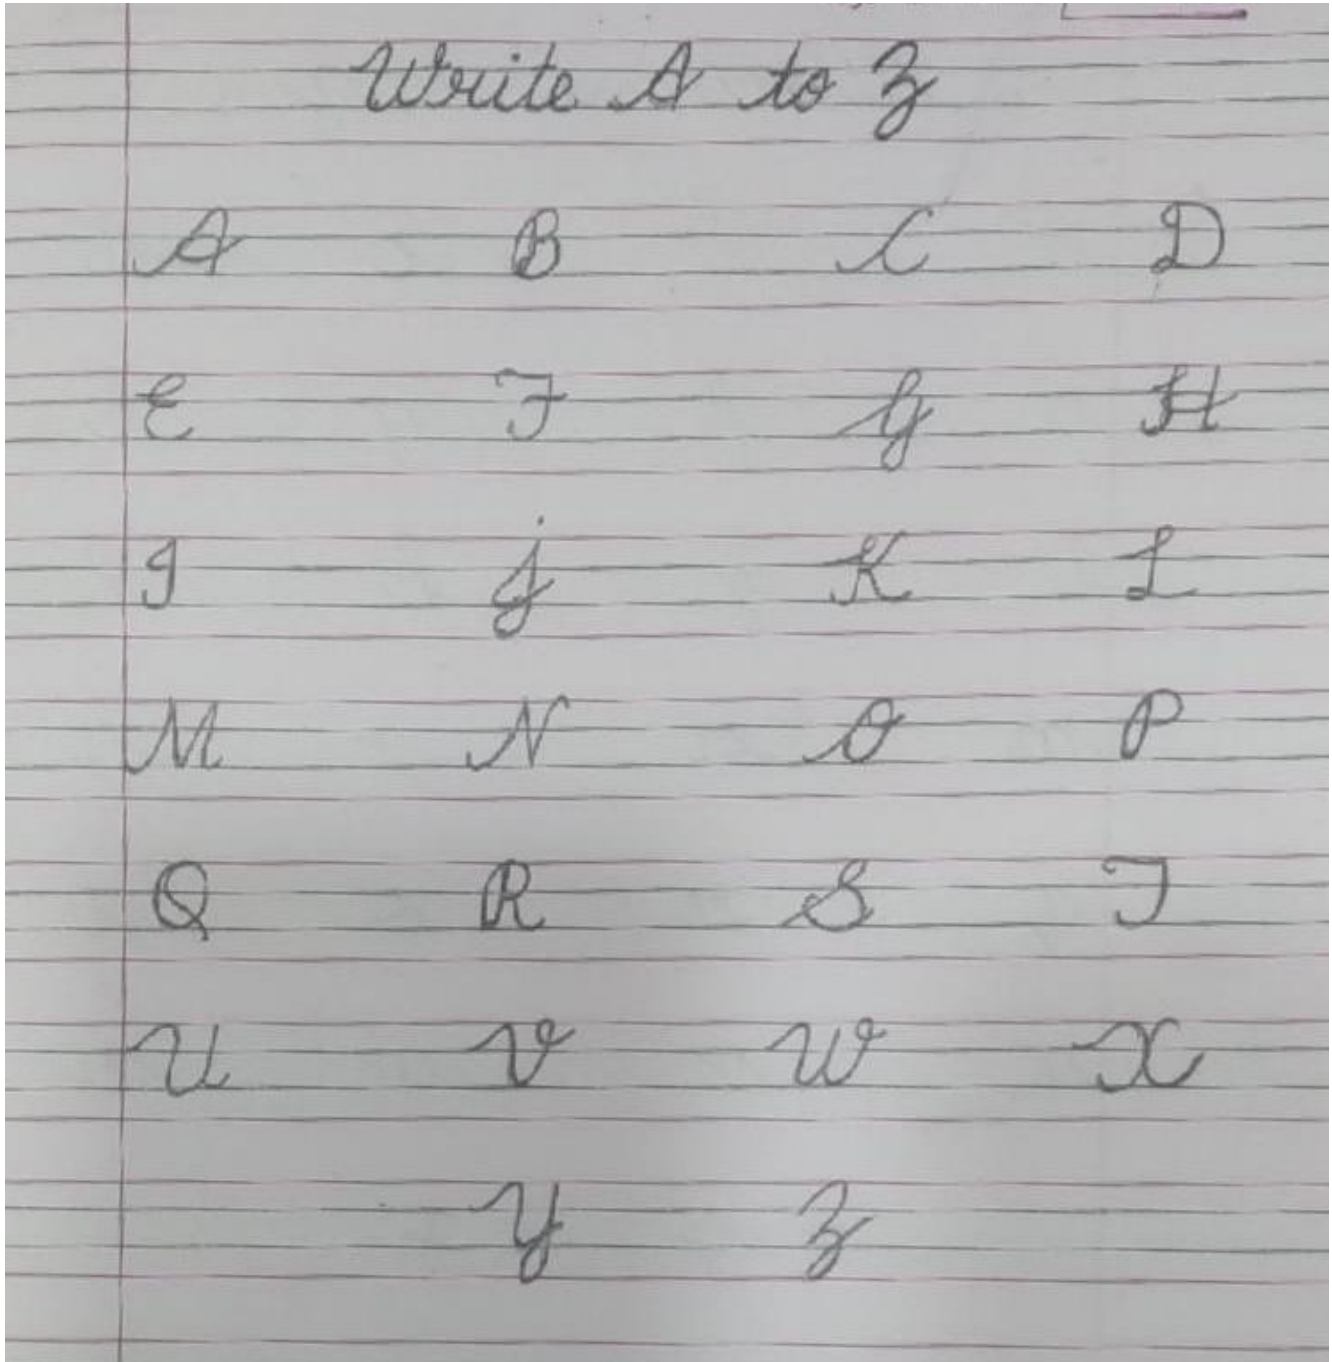 Write A to Z
A B C D
E F G H
I j K L
M N O P
Q R S T
U V W X
Y Z